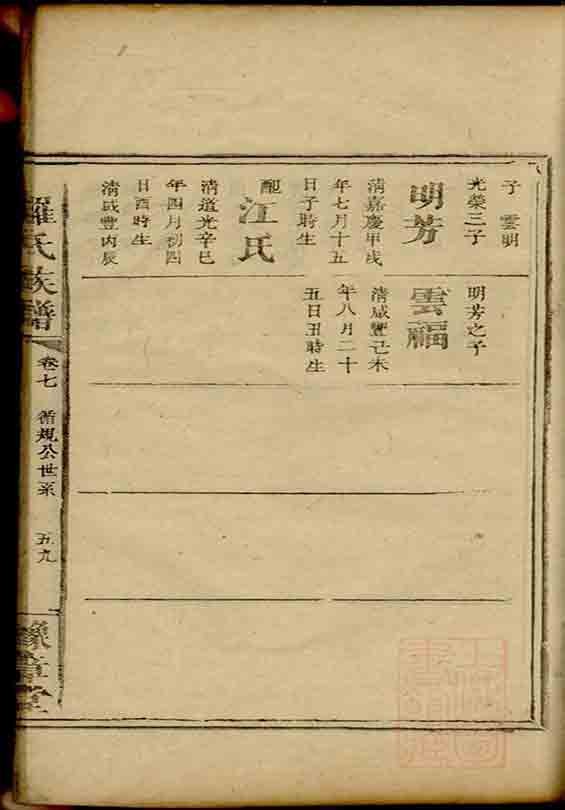 子 雲明
光榮三子
明芳
清嘉慶甲戌
年七月十五
日子時生
配江氏
清道光辛巳
年四月初四
日酉時生
清咸豐丙辰
明芳之子
雲福
清咸豐己未
年八月二十
五日丑時生
羅氏族譜
卷七 循規公世系 五九
豫章堂